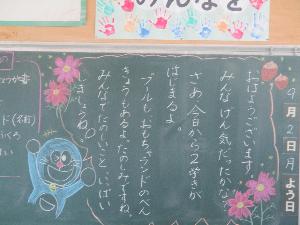 みんなを
9月2日月よう日
おはようございます。
みんなげん気だったかな。
さあ、今日から2学きが
はじまるよ。
プールも、おもちゃランドのべん
きょうもあるよ。たのしみですね。
みんなでたのしいこと、いっぱい
しましょうね。